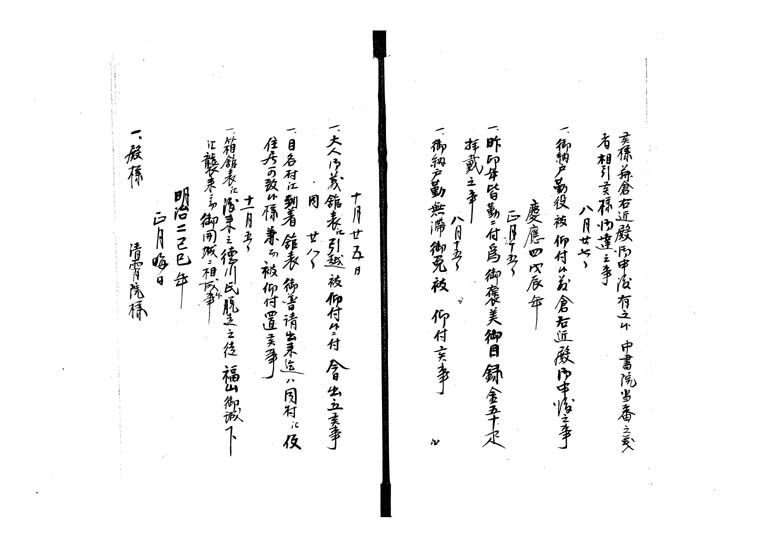 亥様蠣倉右近殿御申渡有之候 中書院当番之義
者相引亥様御達之事
八月廿七日
一、御納戸勤役被 仰付候義倉右近殿御申渡之事
慶應四戊辰年
正月十五日
一、昨卯年皆勤ニ付為御褒美御目録金五十疋
拝戴之事
八月十五日
一、御納戸勤無滞御免被 仰付亥事
十月廿五日
一、大人御義館表江引越被 仰付候ニ付今日出立亥事
同 廿八日
一、目名村江到着館表御普請出来迄ハ同村江仮
住居可致候様兼而被 仰付置亥事
十一月五日
一、箱館表江渡来之徳川氏脱走之徒福山御城下
江襲来之節御開城ニ相成事
明治二己巳年
正月晦日
一、殿様 清霄院様